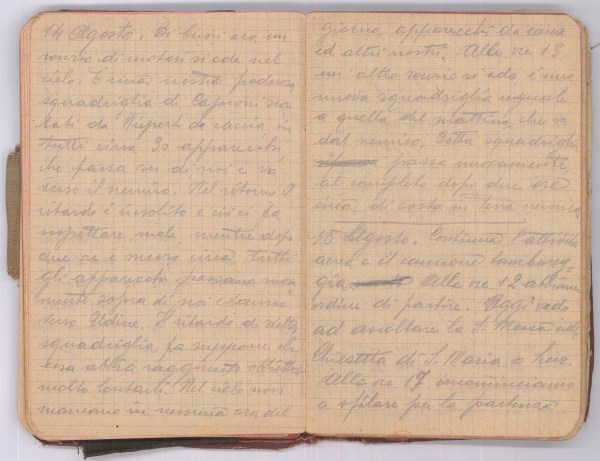 14 Agosto. Di buon'ora un
ronzio di motori si ode nel
cielo. È una nostra poderosa
squadriglia di Caproni scor
tati da Nieuport da caccia, in
tutti circa 30 apparecchi
che passa su di noi e va
verso il nemico. Nel ritorno il
ritardo è insolito e ci fa
sospettare male, mentre dopo
due ore e mezzo circa, tutti
gli apparecchi passano nuova
mente sopra di noi e vanno
verso Udine. Il ritardo di detta
squadriglia fa supporre che
essa abbia raggiunto obbiettivi
molto lontani. Nel cielo non
mancano in nessuna ora del
giorno, apparecchi da caccia
ed altri nostri. Alle ore 13
un altro ronzio si ode è una
nuova squadriglia eguale
a quella del mattino, che va
dal nemico. Detta squadriglia
passa nuovamente
al completo dopo due ore
circa, di sosta in terra nemica.
15 Agosto. Continua l'attività
aerea e il cannone tamboreg-
gia. Alle ore 12 abbiamo
ordine di partire. Oggi vado
ad ascoltare la S. Messa nella
Chiesetta di S. Maria a
Alle ore 17 incominciamo
a sfilare per la partenza